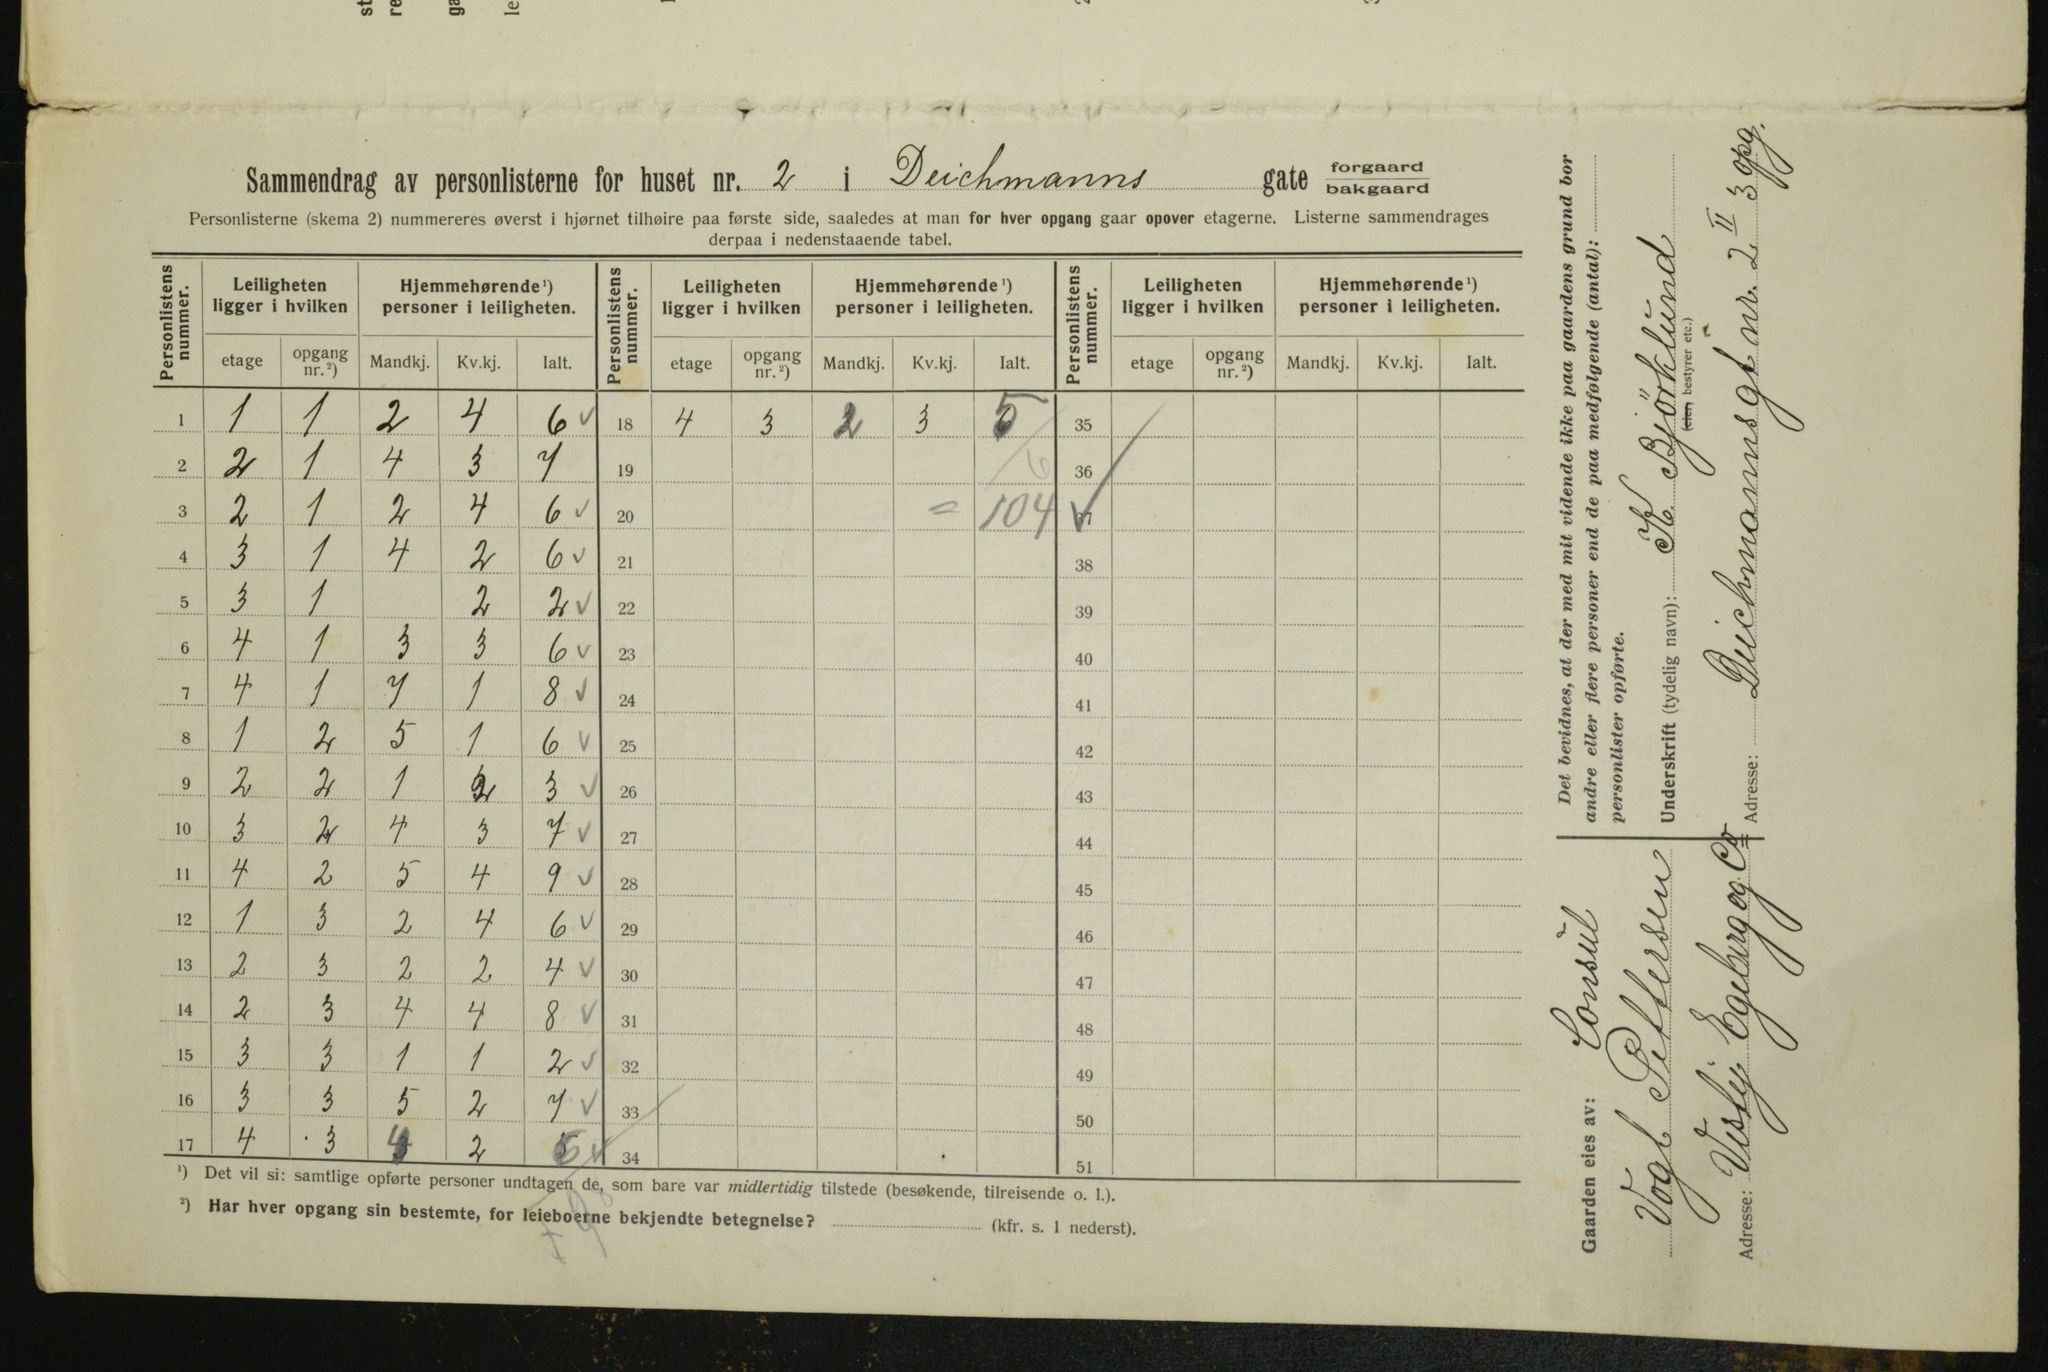 Sammendrag av personlisterne for huset nr. 2 i Deichmanns gate forgaard bakgaard
Personlisterne (skema 2) nummereres øverst i hjørnet tilhøire paa første side, saaledes at man for hver opgang gaar opover etagerne. Listerne sammendrages
derpaa i nedenstaaende tabel.
Personlistens nummer. Leiligheten ligger i hvilken Hjemmehørende ¹) personer i leiligheten. Personlistens nummer. Leiligheten ligger i hvilken Hjemmehørende ¹) personer i leiligheten. Personlistens nummer. Leiligheten ligger i hvilken Hjemmehørende ¹) personer i leiligheten.
etage opgang nr. ²) Mandkj. Kv.kj. Ialt. etage opgang nr. ²) Mandkj. Kv.kj. Ialt. etage opgang nr. ²) Mandkj. Kv.kj. Ialt.
1 1 1 2 4 6 ✓ 18 4 3 2 3 5 35
2 2 1 4 3 7 19 36
3 2 1 2 4 6 ✓ 20 = 104 ✓
4 3 1 4 2 6 ✓ 21 38
5 3 1 2 2 ✓ 22 39
6 4 1 3 3 6 ✓ 23 40
7 4 1 7 1 8 ✓ 24 41
8 1 2 5 1 6 ✓ 25 42
9 2 2 1 2 3 ✓ 26 43
10 3 2 4 3 7 ✓ 27 44
11 4 2 5 4 9 ✓ 28 45
12 1 3 2 4 6 ✓ 29 46
13 2 3 2 2 4 ✓ 30 47
14 2 3 4 4 8 ✓ 31 48
15 3 3 1 1 2 ✓ 32 49
16 3 3 5 2 7 ✓ 33 50
17 4 3 4 2 6 ✓ 34 51
¹) Det vil si: samtlige opførte personer undtagen de, som bare var midlertidig tilstede (besøkende, tilreisende o. l.).
²) Har hver opgang sin bestemte, for leieboerne bekjendte betegnelse? (kfr. s. 1 nederst).
Det bevidnes, at der med mit vidende ikke paa gaardens grund bor
andre eller flere personer end de paa medfølgende (antal):
personlister opførte.
Underskrift (tydelig navn): K Bjørklund
(eier, bestyrer etc.)
Adresse: Deichmannsgt nr. 2 II 3 opg.
Gaarden eies av: Consul
Vogt Pettersen
Adresse: Vestye Egeberg og Co